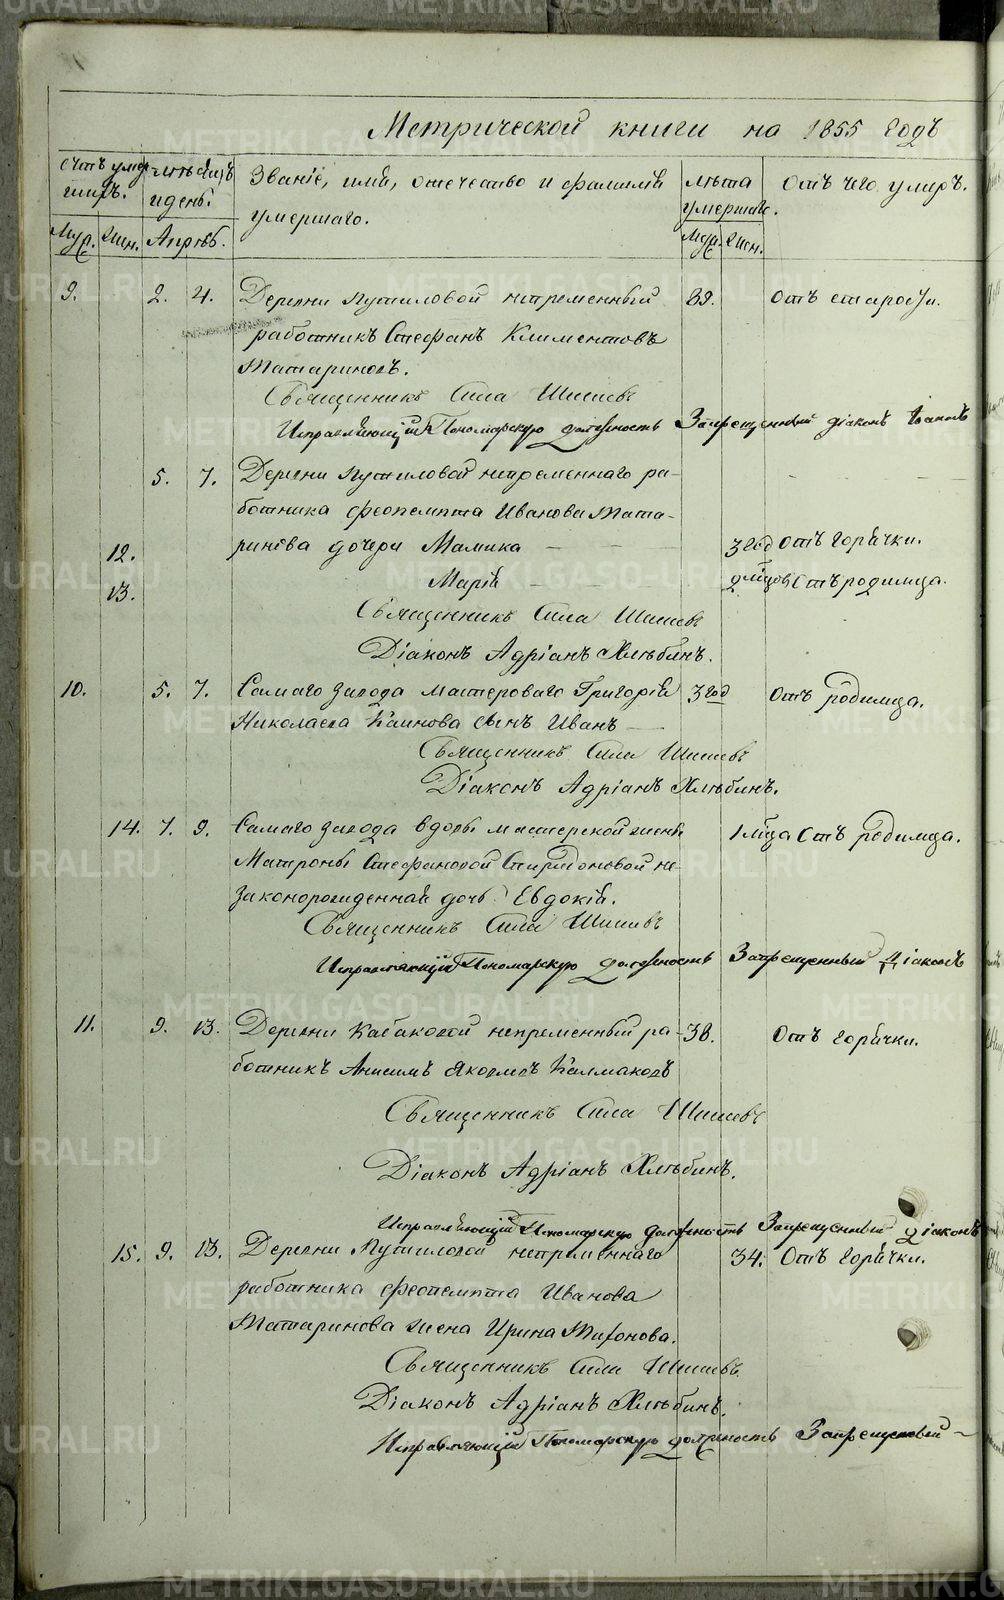 Метрической книги на 1855 годъ
Счетъ умершихъ. Мѣсяцъ и день. Званіе, имя, отечество и фамилія умершаго. Лѣта умершаго. Отъ чего умеръ.
Муж. Жен. Апрѣль. Муж. Жен.
9. 2. 4. Деревни Путиловой непременный 82. Отъ старости.
работникъ Стефанъ Климентовъ
Татариновъ.
Священникъ Сила
Исправляющій Пономарскую должность Запрещенный діаконъ
5. 7. Деревни Путиловой непременнаго ра-
ботника Феопемпта Иванова Тата-
12. ринова дочери Мамика 3 год Отъ горячки.
13. Марія Отъ родимца.
Священникъ Сила
Діаконъ Адріанъ Хлѣбинъ.
10. 5. 7. Самаго завода мастероваго Григорія 3 год Отъ родимца.
Николаева сынъ Иванъ
Священникъ Сила
Діаконъ Адріанъ Хлѣбинъ.
14. 7. 9. Самаго завода вдовы мастерской жены 1 мѣца Отъ родимца.
Матроны Стефановой Спиридоновой не-
законорожденная дочь Евдокія.
Священникъ Сила
Исправляющій Пономарскую должность Запрещенный Діаконъ
11. 9. 13. Деревни Кабаковой непременный ра- 38. Отъ горячки.
ботникъ Анисимъ Яковлевъ Калмаковъ
Священникъ Сила
Діаконъ Адріанъ Хлѣбинъ.
Исправляющій Пономарскую должность Запрещенный діаконъ
15. 9. 13. Деревни Путиловой непременнаго 34. Отъ горячки.
работника Феопемпта Иванова
Татаринова жена Ирина
Священникъ Сила
Діаконъ Адріанъ Хлѣбинъ.
Исправляющій Пономарскую должность Запрещенный
METRIKI.GASO-URAL.RU